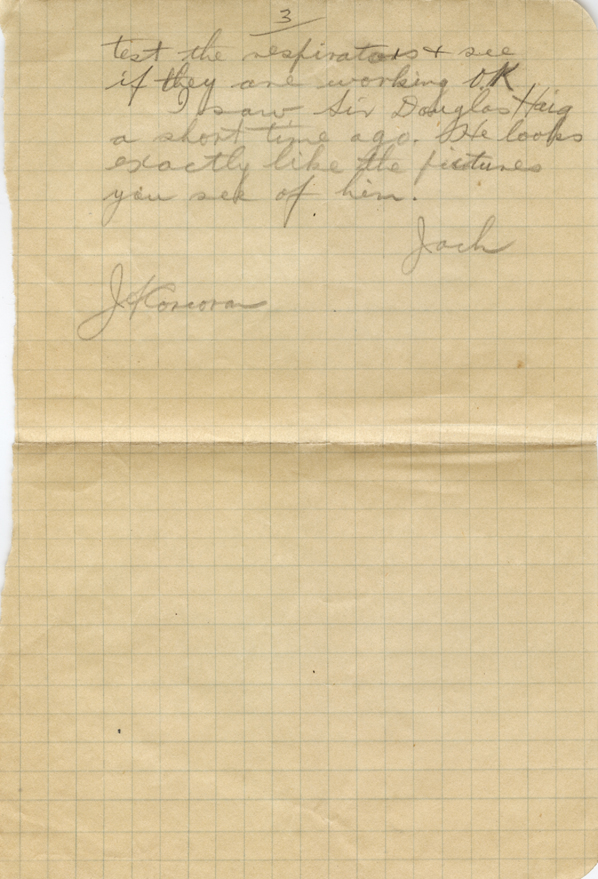 3
test the respirators + see
if they are working OK
I saw Sir Douglas Haig
a short time ago. He looks
exactly like the pictures
you see of him.
Jack
J Korcoran